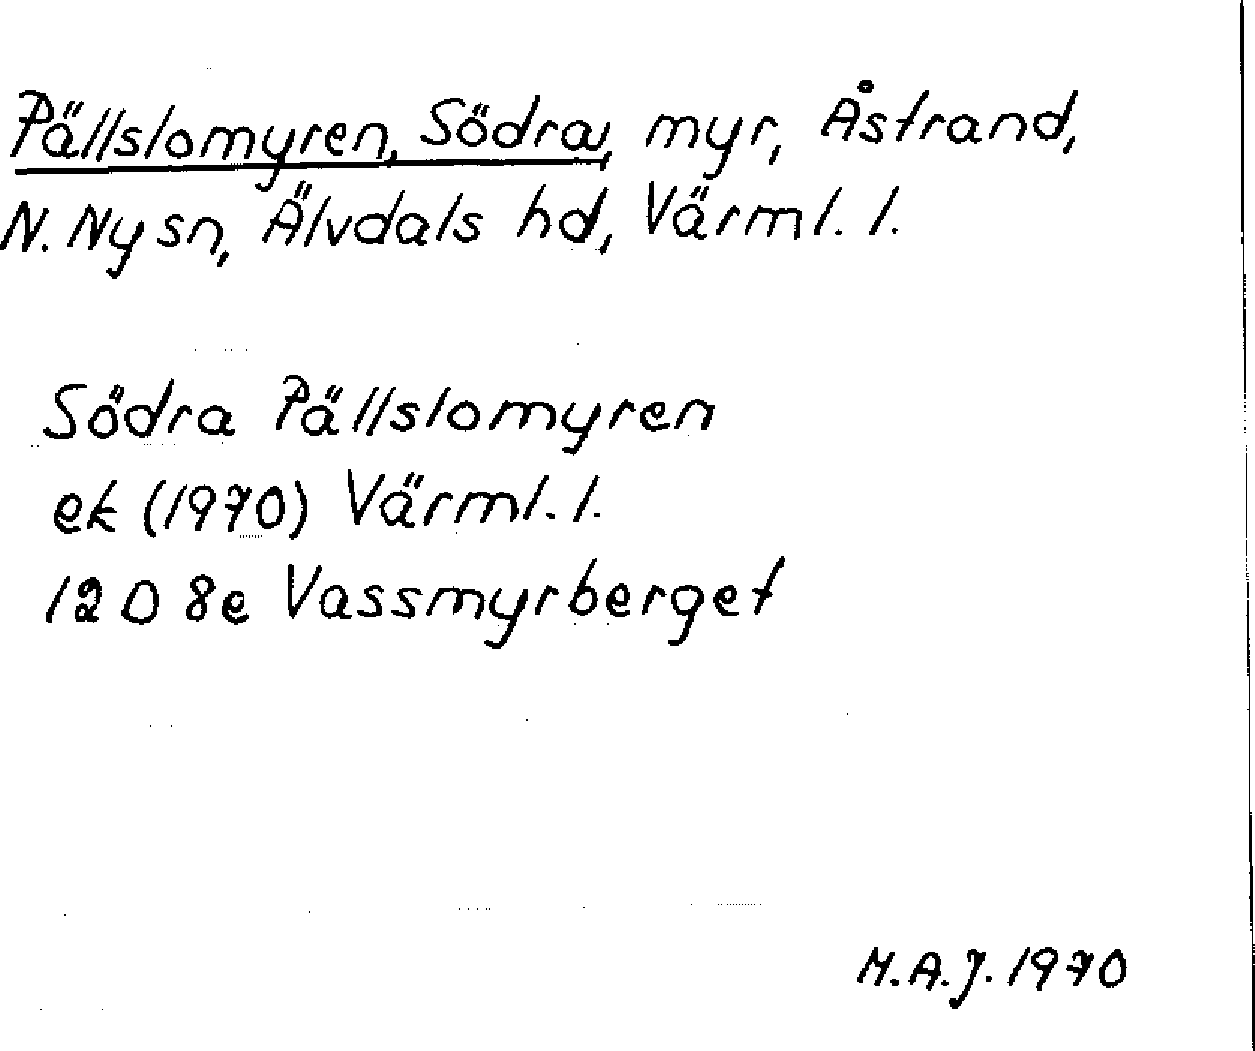 Pällslomyren, Södra, myr, Åstrand,
N. Ny sn, Älvdals hd, Värml. l.
Södra Pällslomyren
ek (1970) Värml. l.
12 D 8e Vassmyrberget
M.A.J. 1970